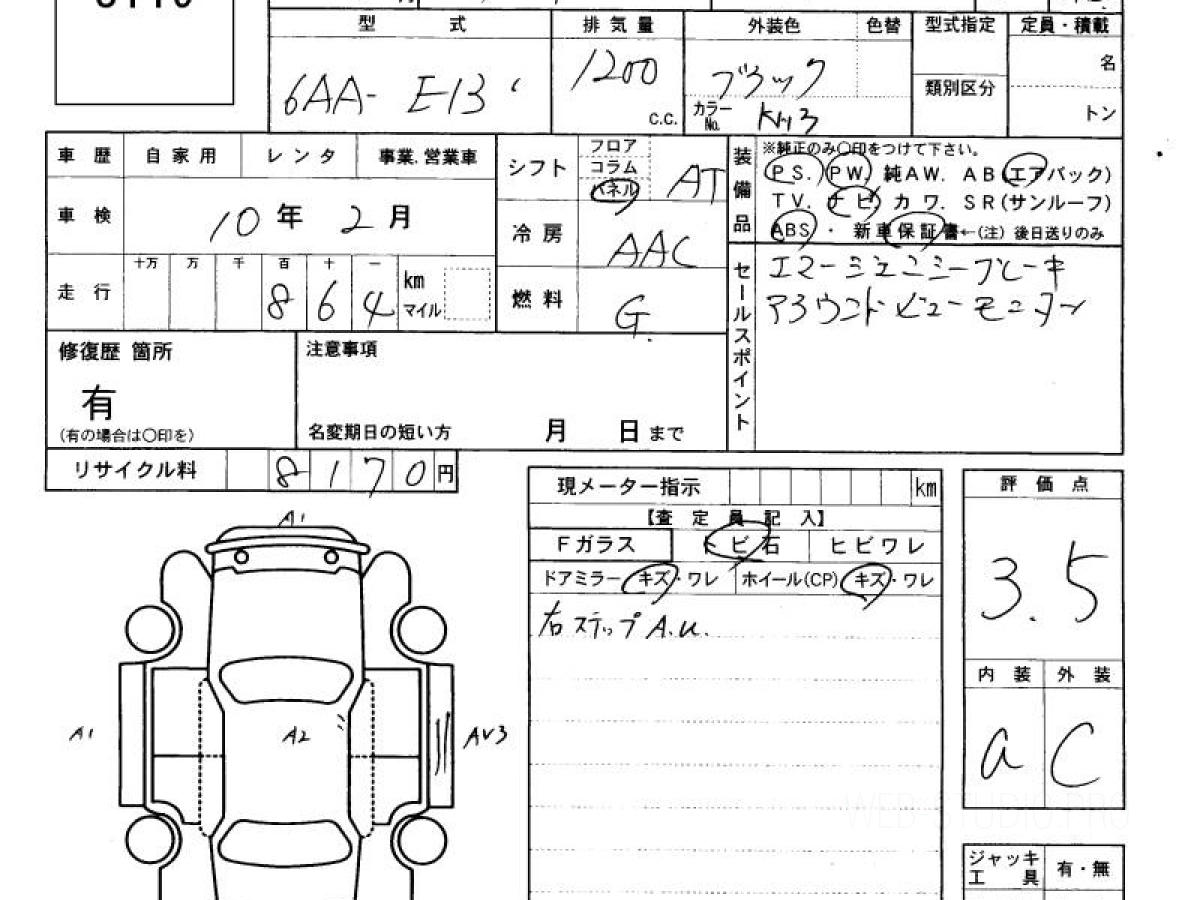 型 式 排 気 量 外装色 色替 型式指定 定員・積載
6AA- E13 1200 c.c. ブラック 類別区分 名
カラーNo. KH3 トン
車 歴 自 家 用 レ ン タ 事業, 営業車
車 検 10 年 2 月
走 行 十万 万 千 百 十 一
8 6 4 km マイル
シフト フロア コラム パネル AT
冷 房 AAC
燃 料 G.
装備品 ※純正のみ〇印をつけて下さい。
PS. PW. 純AW. AB(エアバック)
TV. ナビ. カワ. SR(サンルーフ)
ABS ・ 新車保証書←(注) 後日送りのみ
セールスポイント
エマージェンシーブレーキ
アラウンドビューモニター
修復歴 箇所
有
(有の場合は〇印を)
注意事項
名変期日の短い方 月 日 まで
リサイクル料 8 1 7 0 円
現メーター指示 km
【査 定 員 記 入】
Fガラス トビ石 ヒビワレ
ドアミラー キズ・ワレ ホイール(CP) キズ・ワレ
右ステップ A.U.
評 価 点
3.5
内 装 外 装
a C
A1
A1 A2 AV3
ジャッキ 工 具 有・無
WEB-STUDIO.PRO